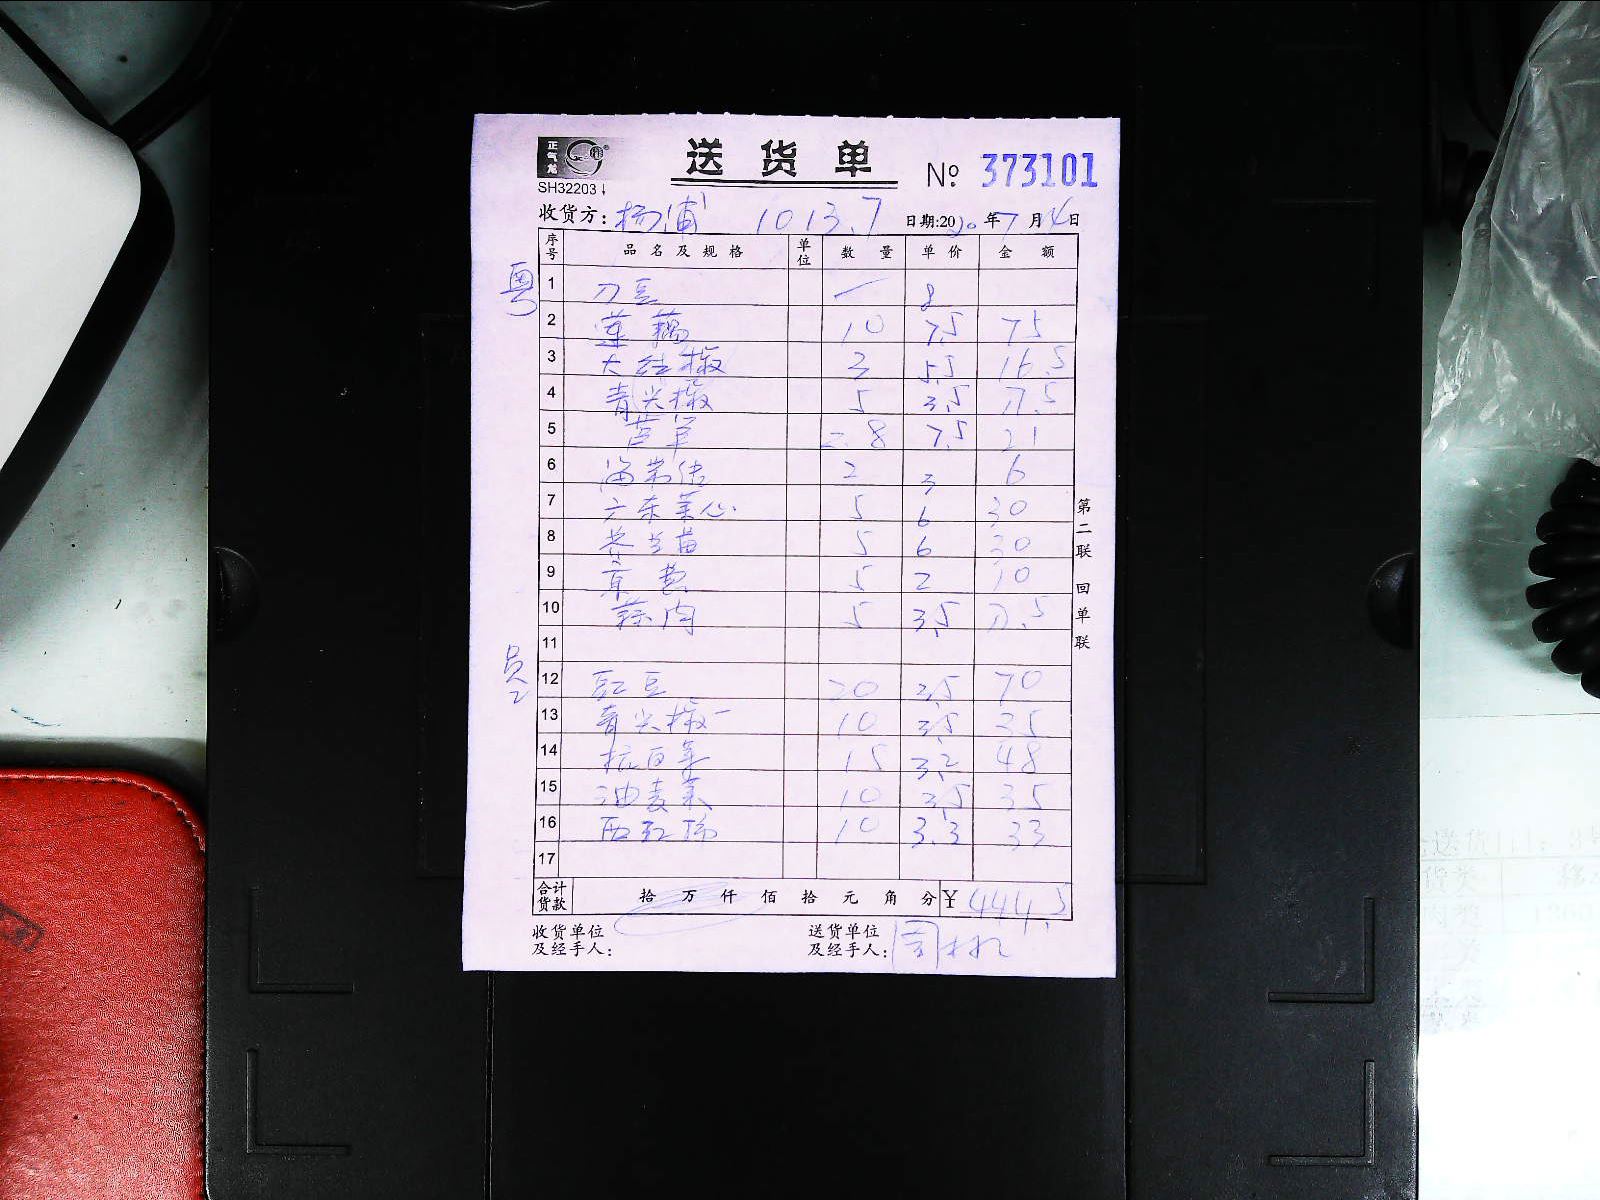 正气龙
SH32203
送货单
№ 373101
收货方: 杨浦 1013.7 日期:2020年7月4日
序号 品名及规格 单位 数量 单价 金额
粤
1 刀豆 一 8
2 莲藕 10 7.5 75
3 大红椒 3 5.5 16.5
4 青尖椒 5 3.5 17.5
5 芦笋 2.8 7.5 21
6 海带结 2 3 6
7 广东菜心 5 6 30
8 5 6 30
9 5 2 10
10 蒜肉 5 3.5 17.5
11
员工
12 豇豆 20 3.5 70
13 青尖椒 10 3.5 35
14 杭白菜 15 3.2 48
15 油麦菜 10 3.5 35
16 西红柿 10 3.3 33
17
合计货款 拾 万 仟 佰 拾 元 角 分 ¥ 444.5
收货单位及经手人:
送货单位及经手人:
第二联 回单联